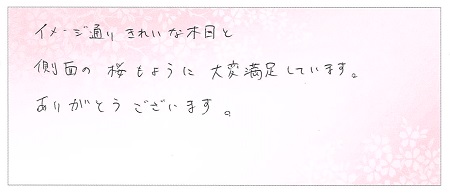 イメージ通りきれいな木目と
側面の桜もように大変満足しています。
ありがとうございます。